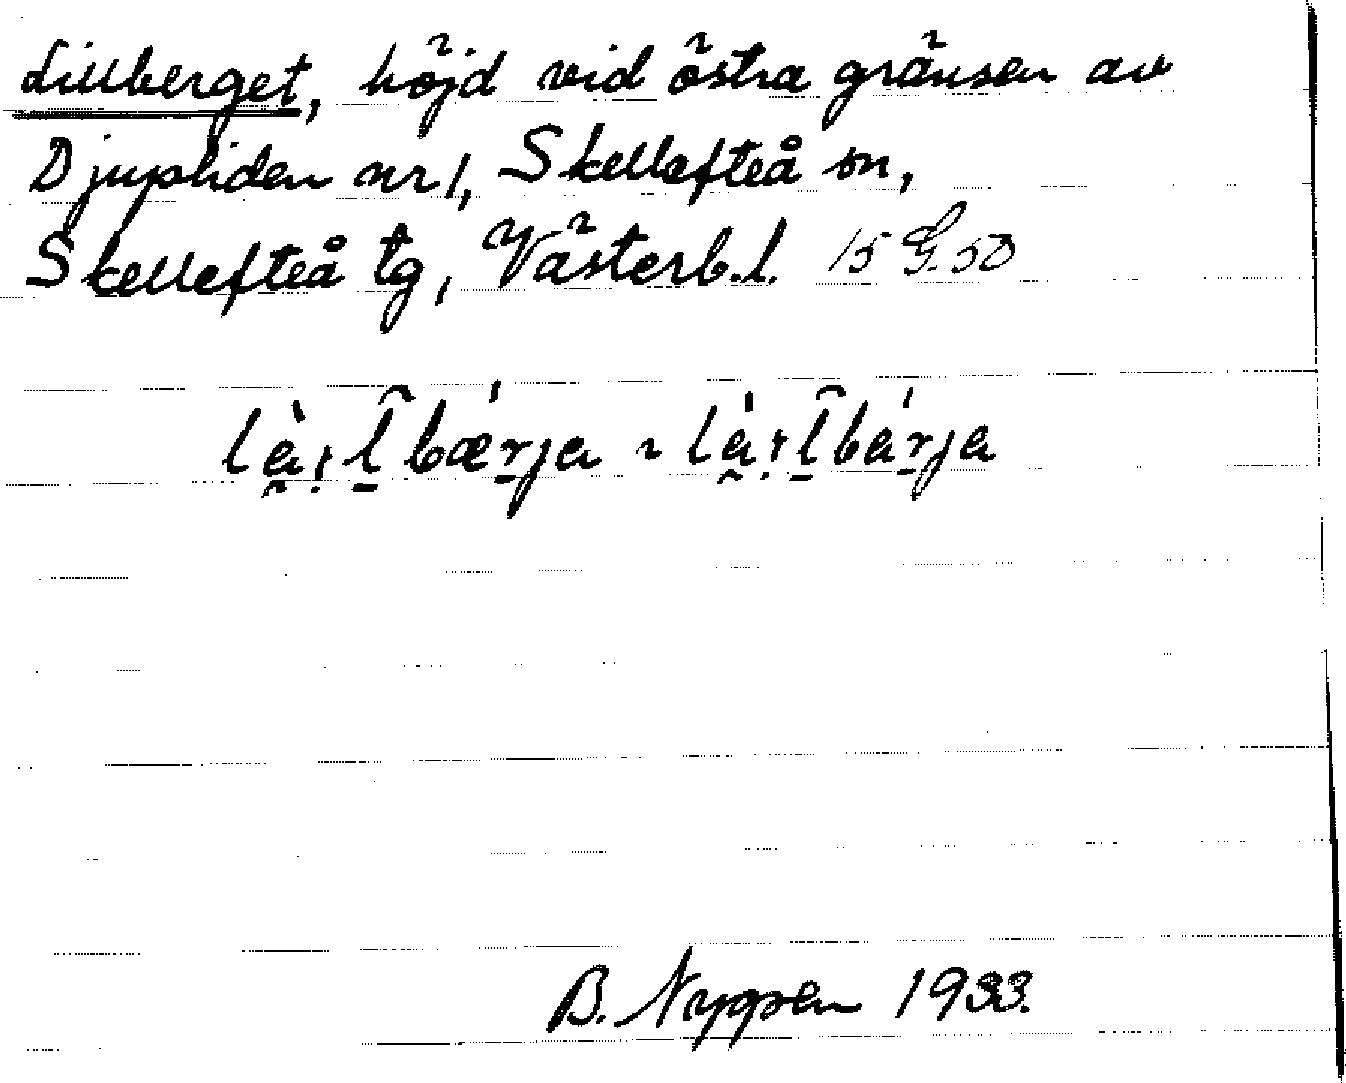 Lillberget, höjd vid östra gränsen av
Djupliden nr 1, Skellefteå sn,
Skellefteå tg, Västerb. l. 15 G. 50
B. Nygren 1933.